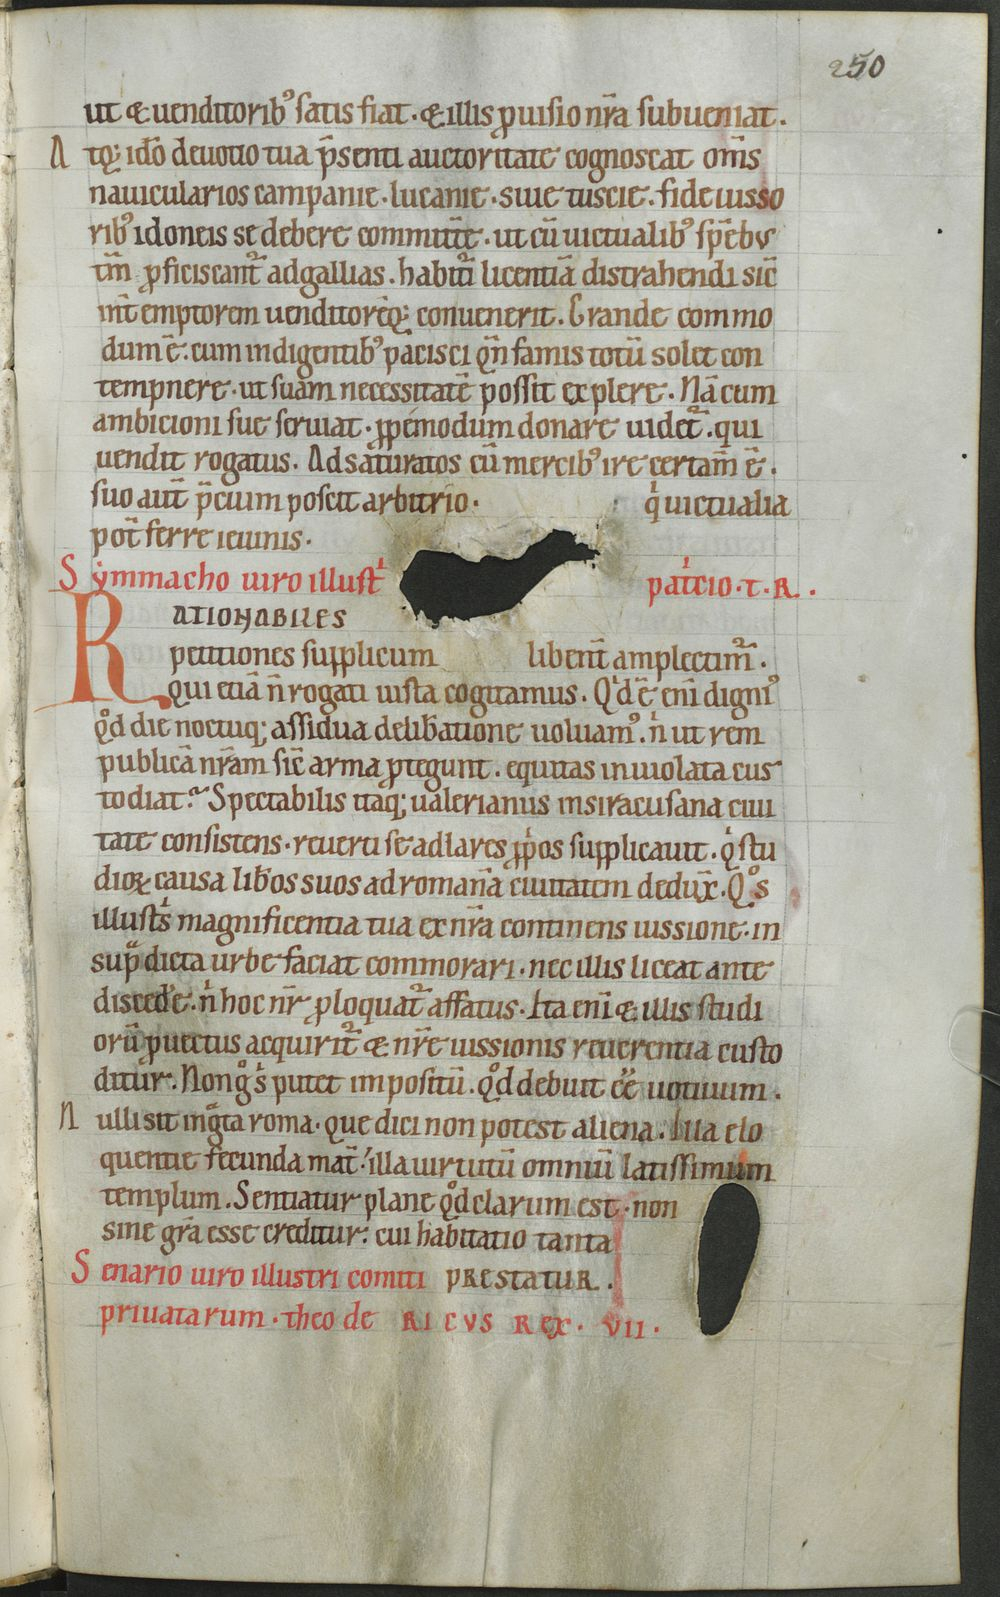 250
ut & uenditorib⁹ satis fiat · & illis ꝓuisio nr̄a subueniat ·
A tq; idō deuotio tua p̄senti auctoritate cognoscat om̄s
nauicularios campanie · lucanie · siue tuscie · fideiusso
rib⁹ idoneis se debere committ̄e · ut cū uictualib⁹ sp̄eb⁹
tm̄ ꝓficiscant᷑ ad gallias . habitu᷑i licentiā distrahendi sic̄
int̄ emptorem uenditorēq; conuenerit . Grande commo
dum ē · cum indigentib⁹ pacisci qn̄ famis totū solet con
tempnere · ut suam necessitatē possit explere . Nā cum
ambicioni sue seruiat · ꝓpemodum donare uidet᷑ · qui
uendit rogatus . Ad saturatos cū mercib⁹ ire certam̄ ē .
suo aut̄ p̄cium poscit arbitrio · qͥ uictualia
pot̄ ferre ieiunis ·
S ymmacho uiro illustͥ patͥcio · t · R ·
RATIONABILES
petitiones supplicum libent̄ amplectim᷑ .
Qui etiā ñ rogati iusta cogitamus . Qͥd ē eni̅ digni⁹
qͦd die noctuq; assidua delib̄atione uoluam⁹ . nͥ ut rem
publicā nr̄am sic̄ arma ꝓtegunt . equitas inuiolata cus
todiat ? Spectabilis itaq; ualerianus in siracusana ciui
tate consistens · reuerti se ad lares ꝓpͥos supplicauit . qͥ stu
dioꝝ causa lib̄os suos ad romana̅ ciuitatem dedux̄ . Qͦs
illustͥs magnificentia tua ex nr̄a continens iussione · in
supᷓdicta urbe faciat commorari · nec illis liceat ante
disced̄e · nͥ hoc nr̄ ꝓloquat᷑ affatus · Ita eni̅ & illis studi
orū ꝓuectus acquirit᷑ & nr̄e iussionis reuerentia custo
ditur . Non gͦ sͥ putet impositū . qͦd debuit ēe uotiuum ·
N ulli sit ingᷓta roma · que dici non potest aliena . Illa elo
quentie fecunda mat̄ · illa uirtutū omniū latissimum
templum . Sentiatur plane qͦd clarum est · non
sine gr̄a esse creditur : cui habitatio tanta
S enario uiro illustri comiti PRESTATUR .
priuatarum · theo de RICVS REX · VII ·